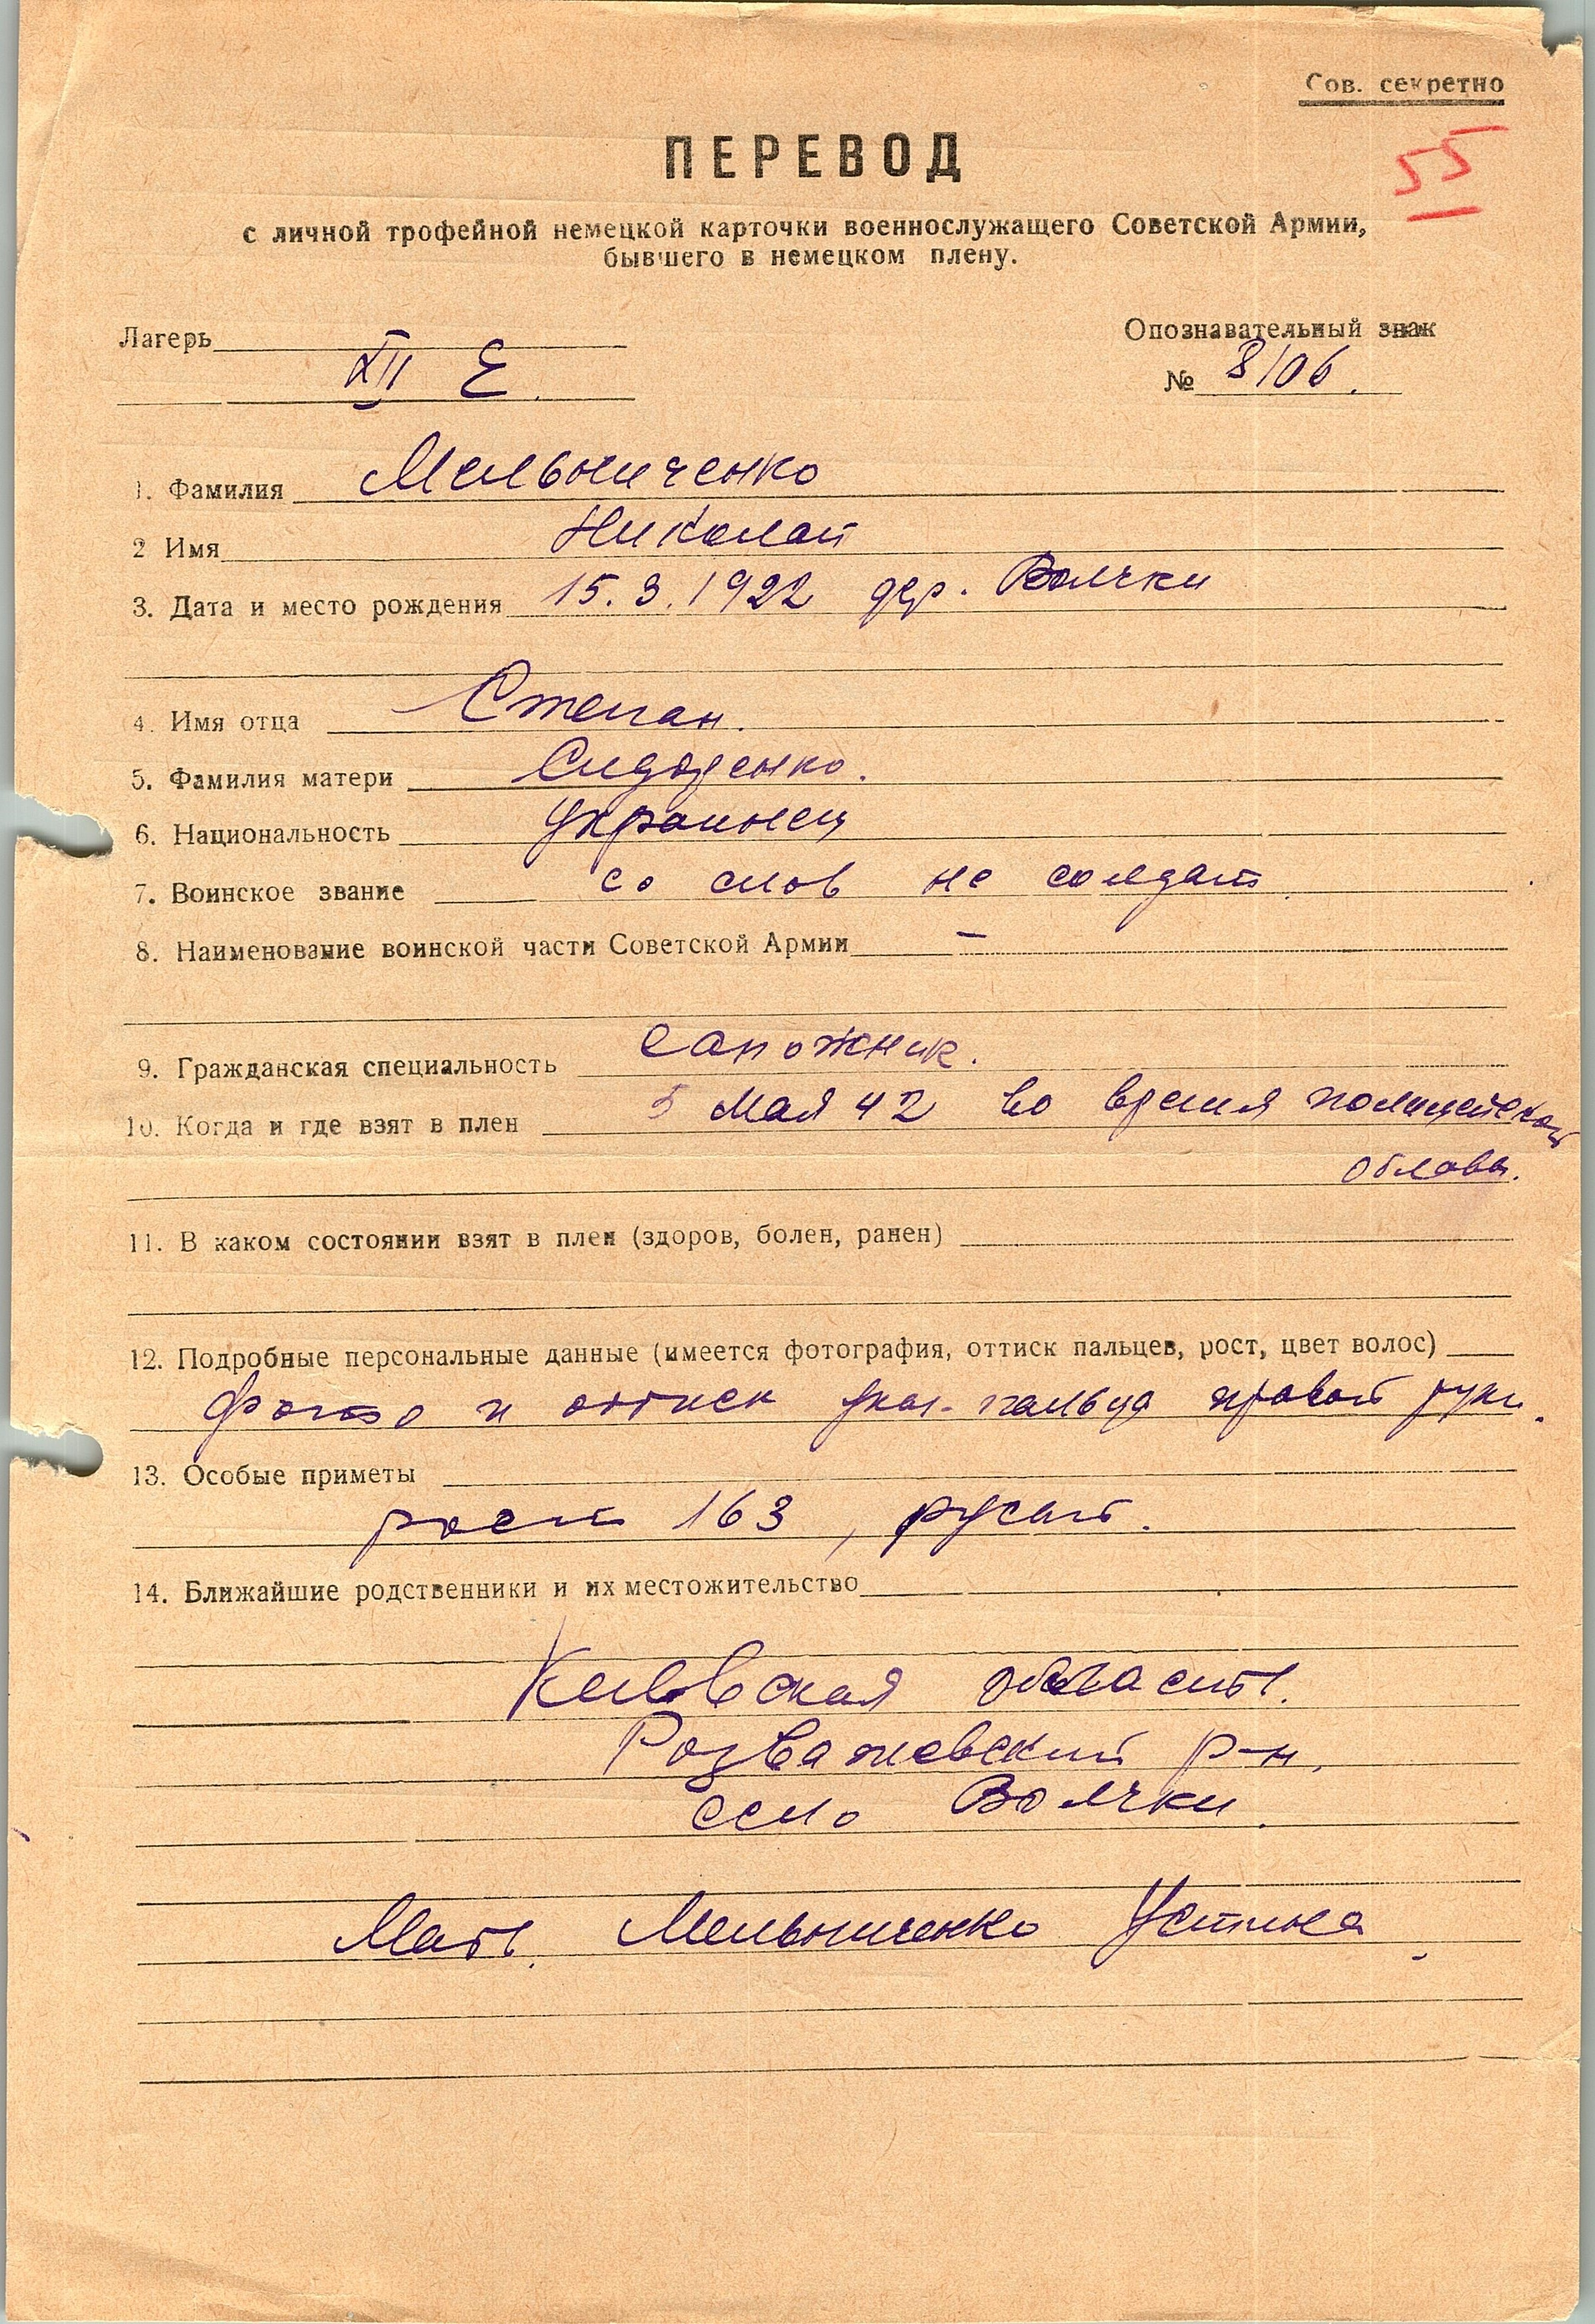 Сов. секретно
55
ПЕРЕВОД
с личной трофейной немецкой карточки военнослужащего Советской Армии,
бывшего в немецком плену.
Лагерь
Опознавательный знак
XII Е.
№ 8106.
1. Фамилия Мельниченко
2 Имя Николай
3. Дата и место рождения 15.3.1922 дер. Волчки
4. Имя отца Степан.
5. Фамилия матери Сидоренко.
6. Национальность украинец
7. Воинское звание со слов не солдат.
8. Наименование воинской части Советской Армии –
9. Гражданская специальность сапожник.
10. Когда и где взят в плен 5 мая 42 во время полицейской
облавы.
11. В каком состоянии взят в плен (здоров, болен, ранен)
12. Подробные персональные данные (имеется фотография, оттиск пальцев, рост, цвет волос)
фото и оттиск указ. пальца правой руки.
13. Особые приметы
рост 163, русый.
14. Ближайшие родственники и их местожительство
Киевская область.
Розважевский р-н.
село Волчки.
Мать. Мельниченко Устина.